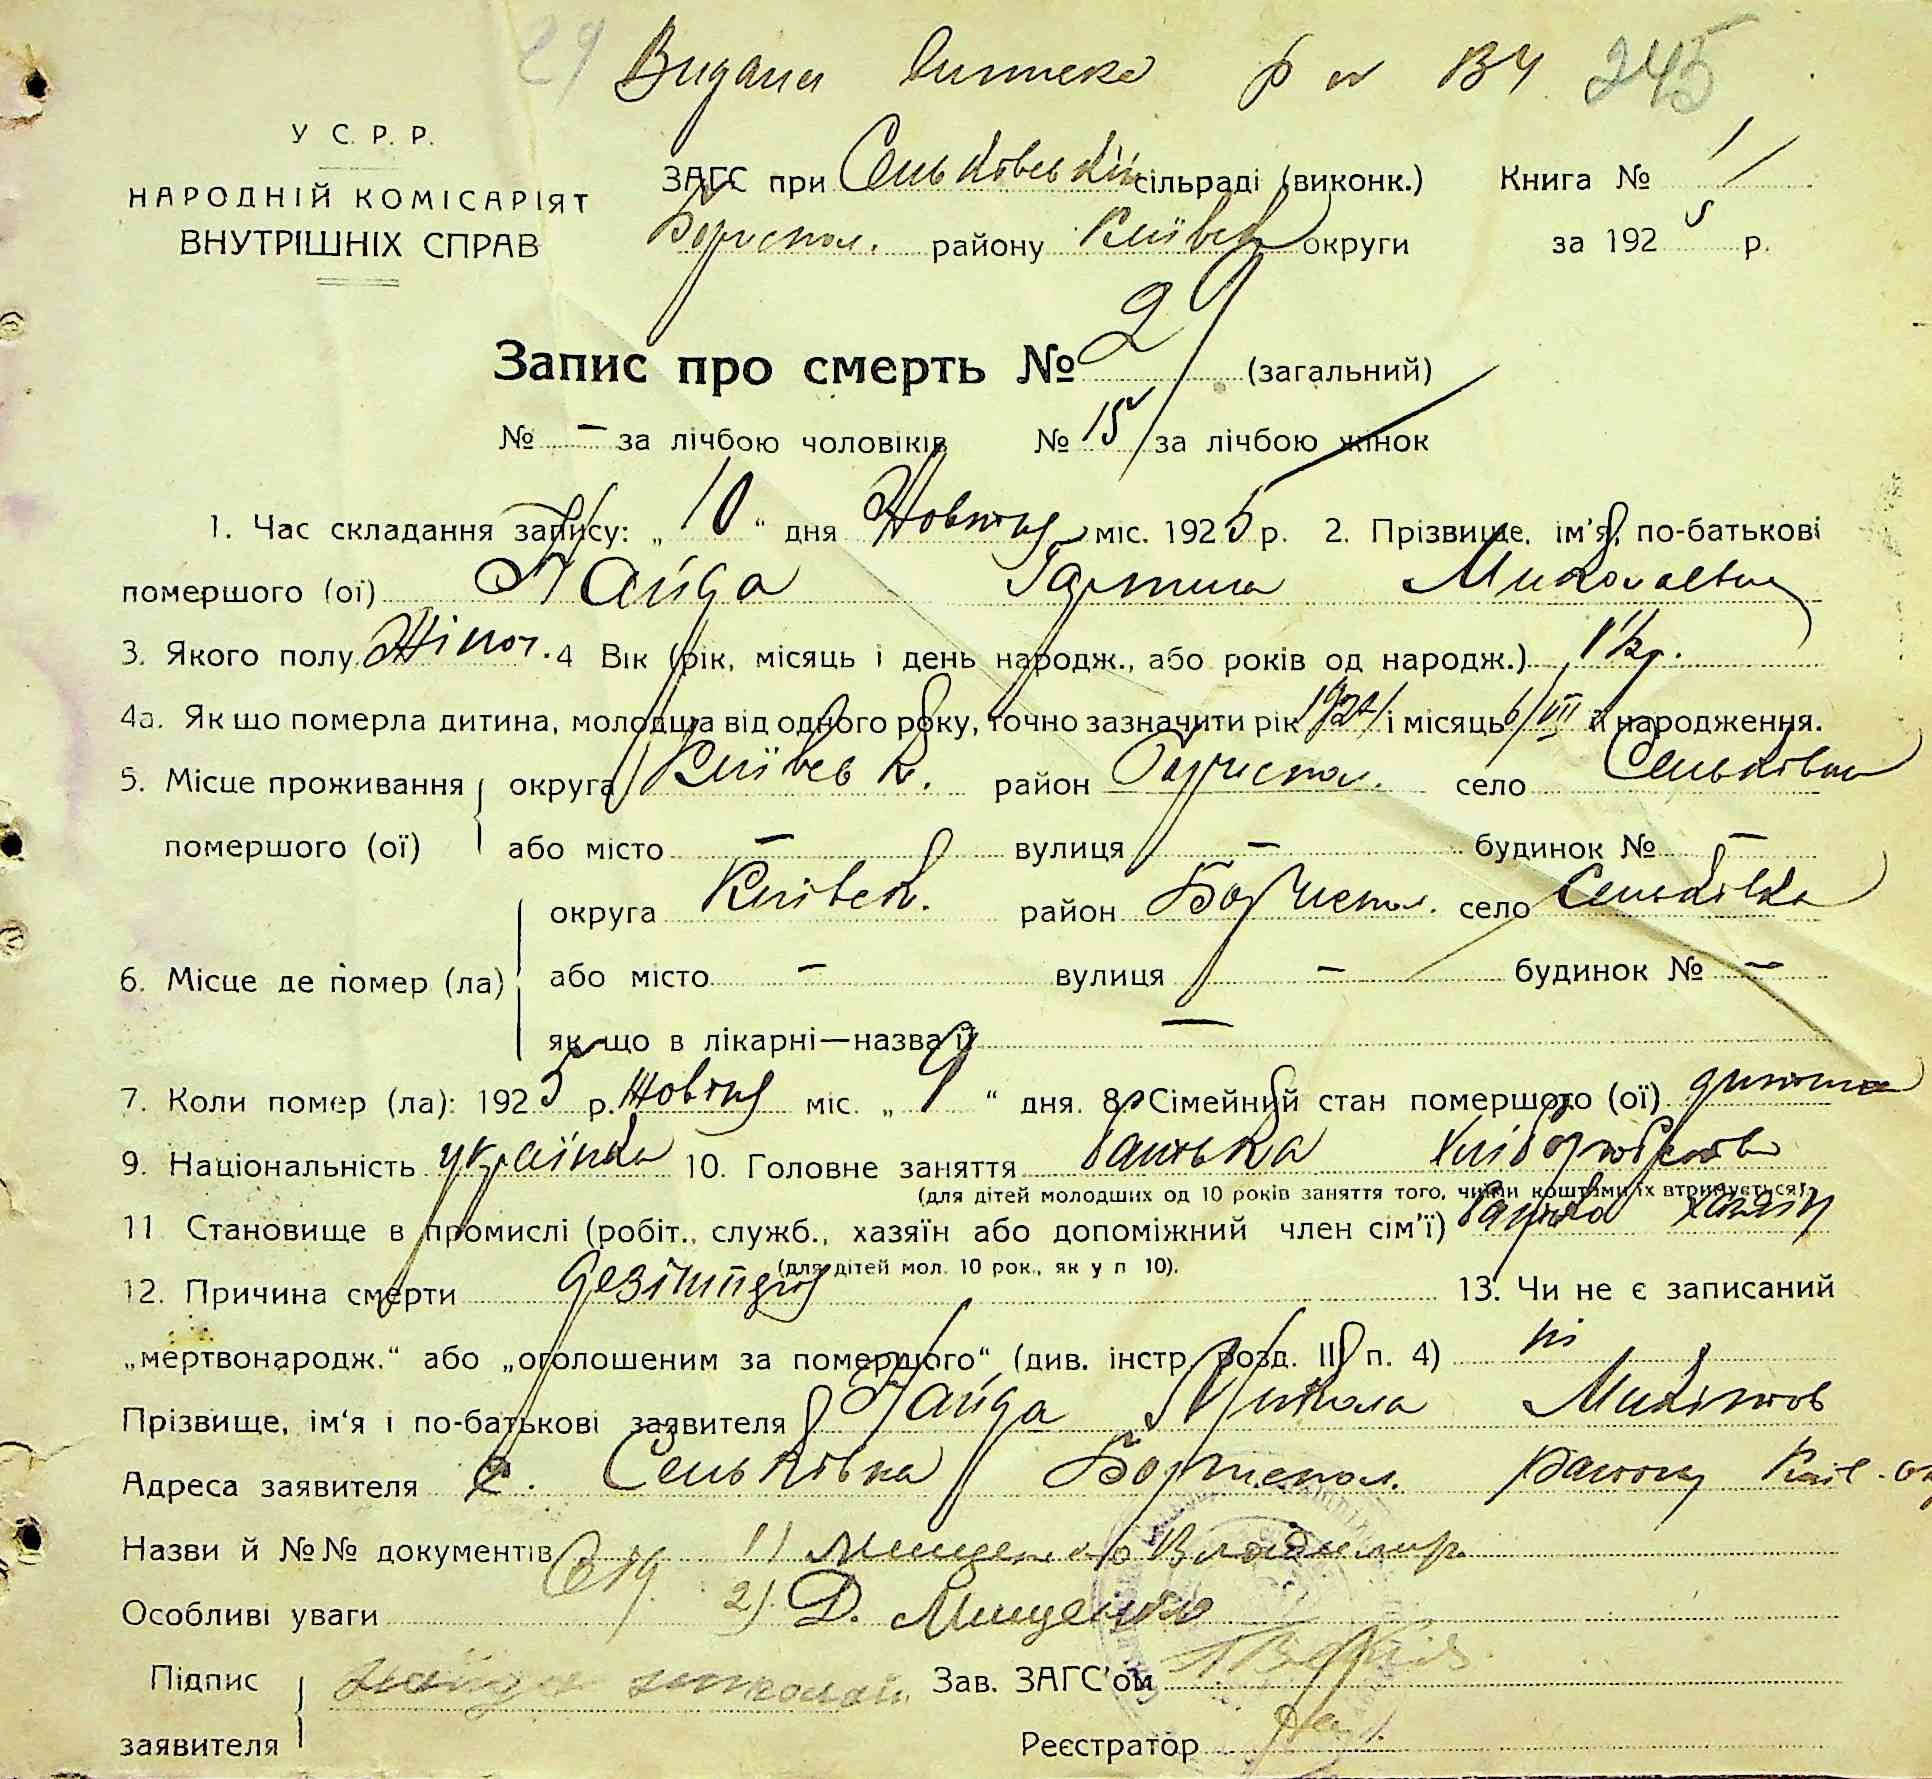 29 Видана виписка р № 134 245
У С. Р. Р.
НАРОДНІЙ КОМІСАРІЯТ
ВНУТРІШНІХ СПРАВ
ЗАГС при Сеньковській сільраді (виконк.) Книга № 1
Бориспол. району Київськ округи за 1925 р.
Запис про смерть № 29 (загальний)
№ – за лічбою чоловіків № 15 за лічбою жінок
1. Час складання запису: „ 10 “ дня Жовтня міс. 1925 р. 2. Прізвище, ім'я, по-батькові
помершого (ої) Найда Миколаевна
3. Якого полу Жіноч. 4 Вік (рік, місяць і день народж., або років од народж.) 1 1/2 р.
4а. Як що померла дитина, молодша від одного року, точно зазначити рік 1924 і місяць 6/VII й народження.
5. Місце проживання помершого (ої) округа Київськ. район Бориспол. село Сеньківка
або місто – вулиця – будинок № –
6. Місце де помер (ла) округа Київськ. район Бориспол. село Сеньківка
або місто – вулиця – будинок № –
як що в лікарні—назва її –
7. Коли помер (ла): 1925 р. Жовтня міс. „ 9 “ дня. 8. Сімейний стан помершого (ої) дитина
9. Національність українка 10. Головне заняття батька хліборобство
(для дітей молодших од 10 років заняття того, чиїми коштами їх втримується).
11 Становище в промислі (робіт., служб., хазяїн або допоміжний член сім'ї) батько хазяїн
(для дітей мол. 10 рок., як у п 10).
12. Причина смерти дезінтерія 13. Чи не є записаний
„мертвонародж.“ або „оголошеним за помершого“ (див. інстр. розд. III п. 4) ні
Прізвище, ім'я і по-батькові заявителя Найда Микола Микитов
Адреса заявителя с. Сеньківка Бориспол. району Київ. ок
Назви й №№ документів 1) Мищенко Владимир
Особливі уваги 2). Д. Мищенко
Підпис заявителя найда миколай Зав. ЗАГС'ом
Реєстратор